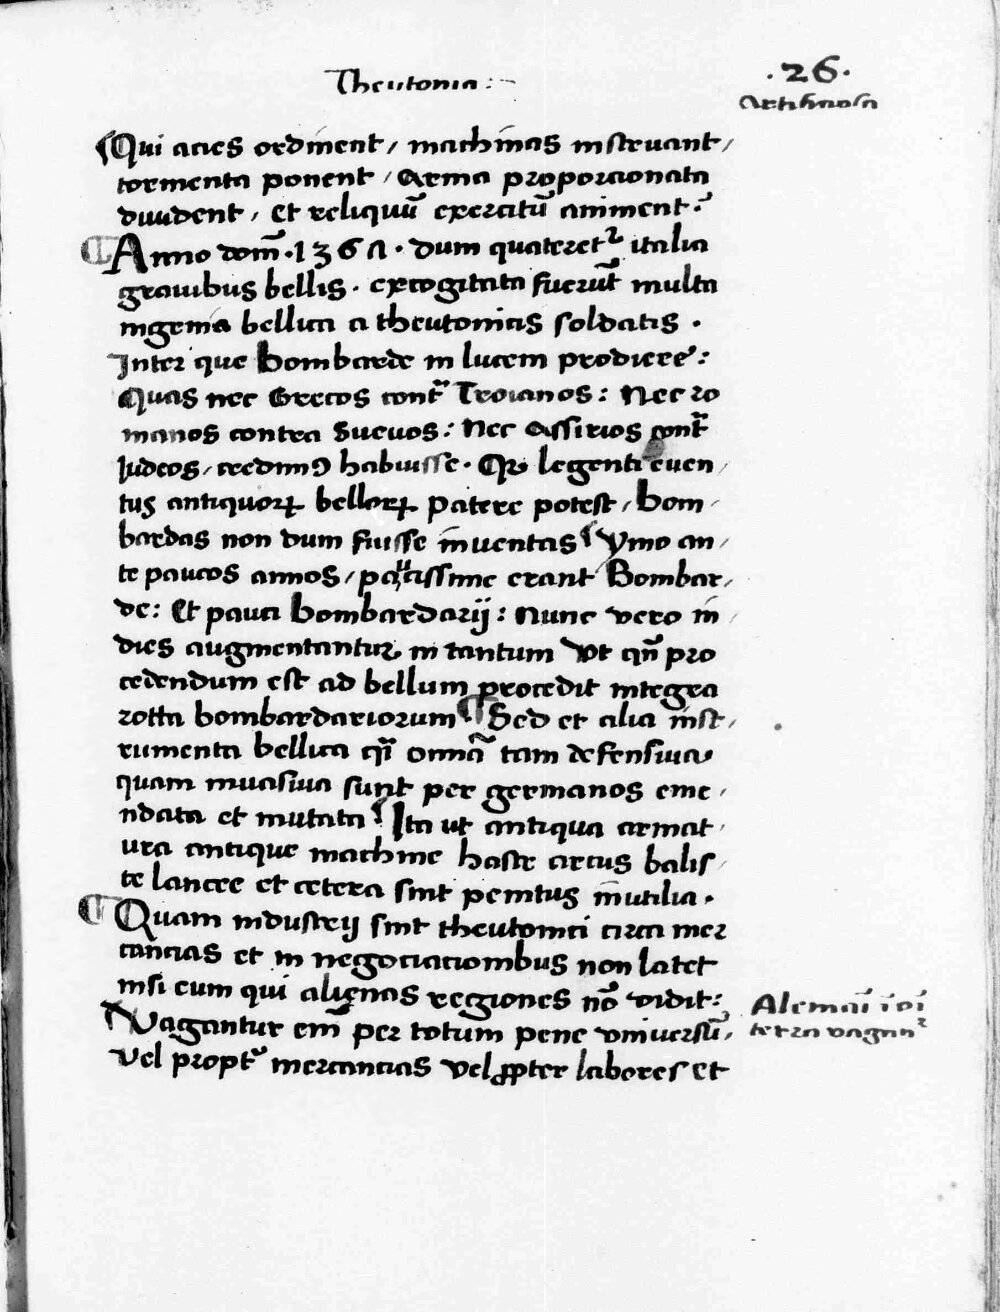 Theutonia:
·26·
Artificiosa
¶Qui acies ordinent / machinas instruant /
tormenta ponent / arma proporcionata
diuident / et reliquū exercitū animent:
Anno dom̄ · 1361 · dum quateretᷣ italia
grauibus bellis · excogitata fuerūt multa
ingenia bellica a theutonicis soldatis ·
Inter que bombarde in lucem prodiere:
Quas nec Grecos contᷓ Troianos: Nec ro
manos contra Sueuos: Nec Assirios contᷓ
Iudeos / credimꝰ habuisse · Qꝛ legenti euen /
tus antiquoꝝ belloꝝ patere potest / bom /
bardas non dum fuisse inuentas ¶ ymo an /
te paucos annos / paucissime erant Bombar /
de: Et pauci bombardarij: Nunc vero in /
dies augmentantur in tantum vt qn̄ pro
cedendum est ad bellum procedit integra
rotta bombardariorum ¶ Sed et alia inst /
rumenta bellica qͣsi omnīa tam defensiua
quam inuasiua sunt per germanos eme /
ndata et mutata ¶ Ita ut antiqua armat /
ura antique machine haste arcus balis /
te lancee et cetera sint penitus inutilia ·
Quam industrij sint theutonici circa mer
cancias et in negociacionibus non latet
nisi eum qui alienas regiones nō vidit:
Vagantur em̄ per totum pene vniuersū /
vel proptᷣ mercancias vel ꝓpter labores et
Alemāi ī oī
terra vaganᷣ